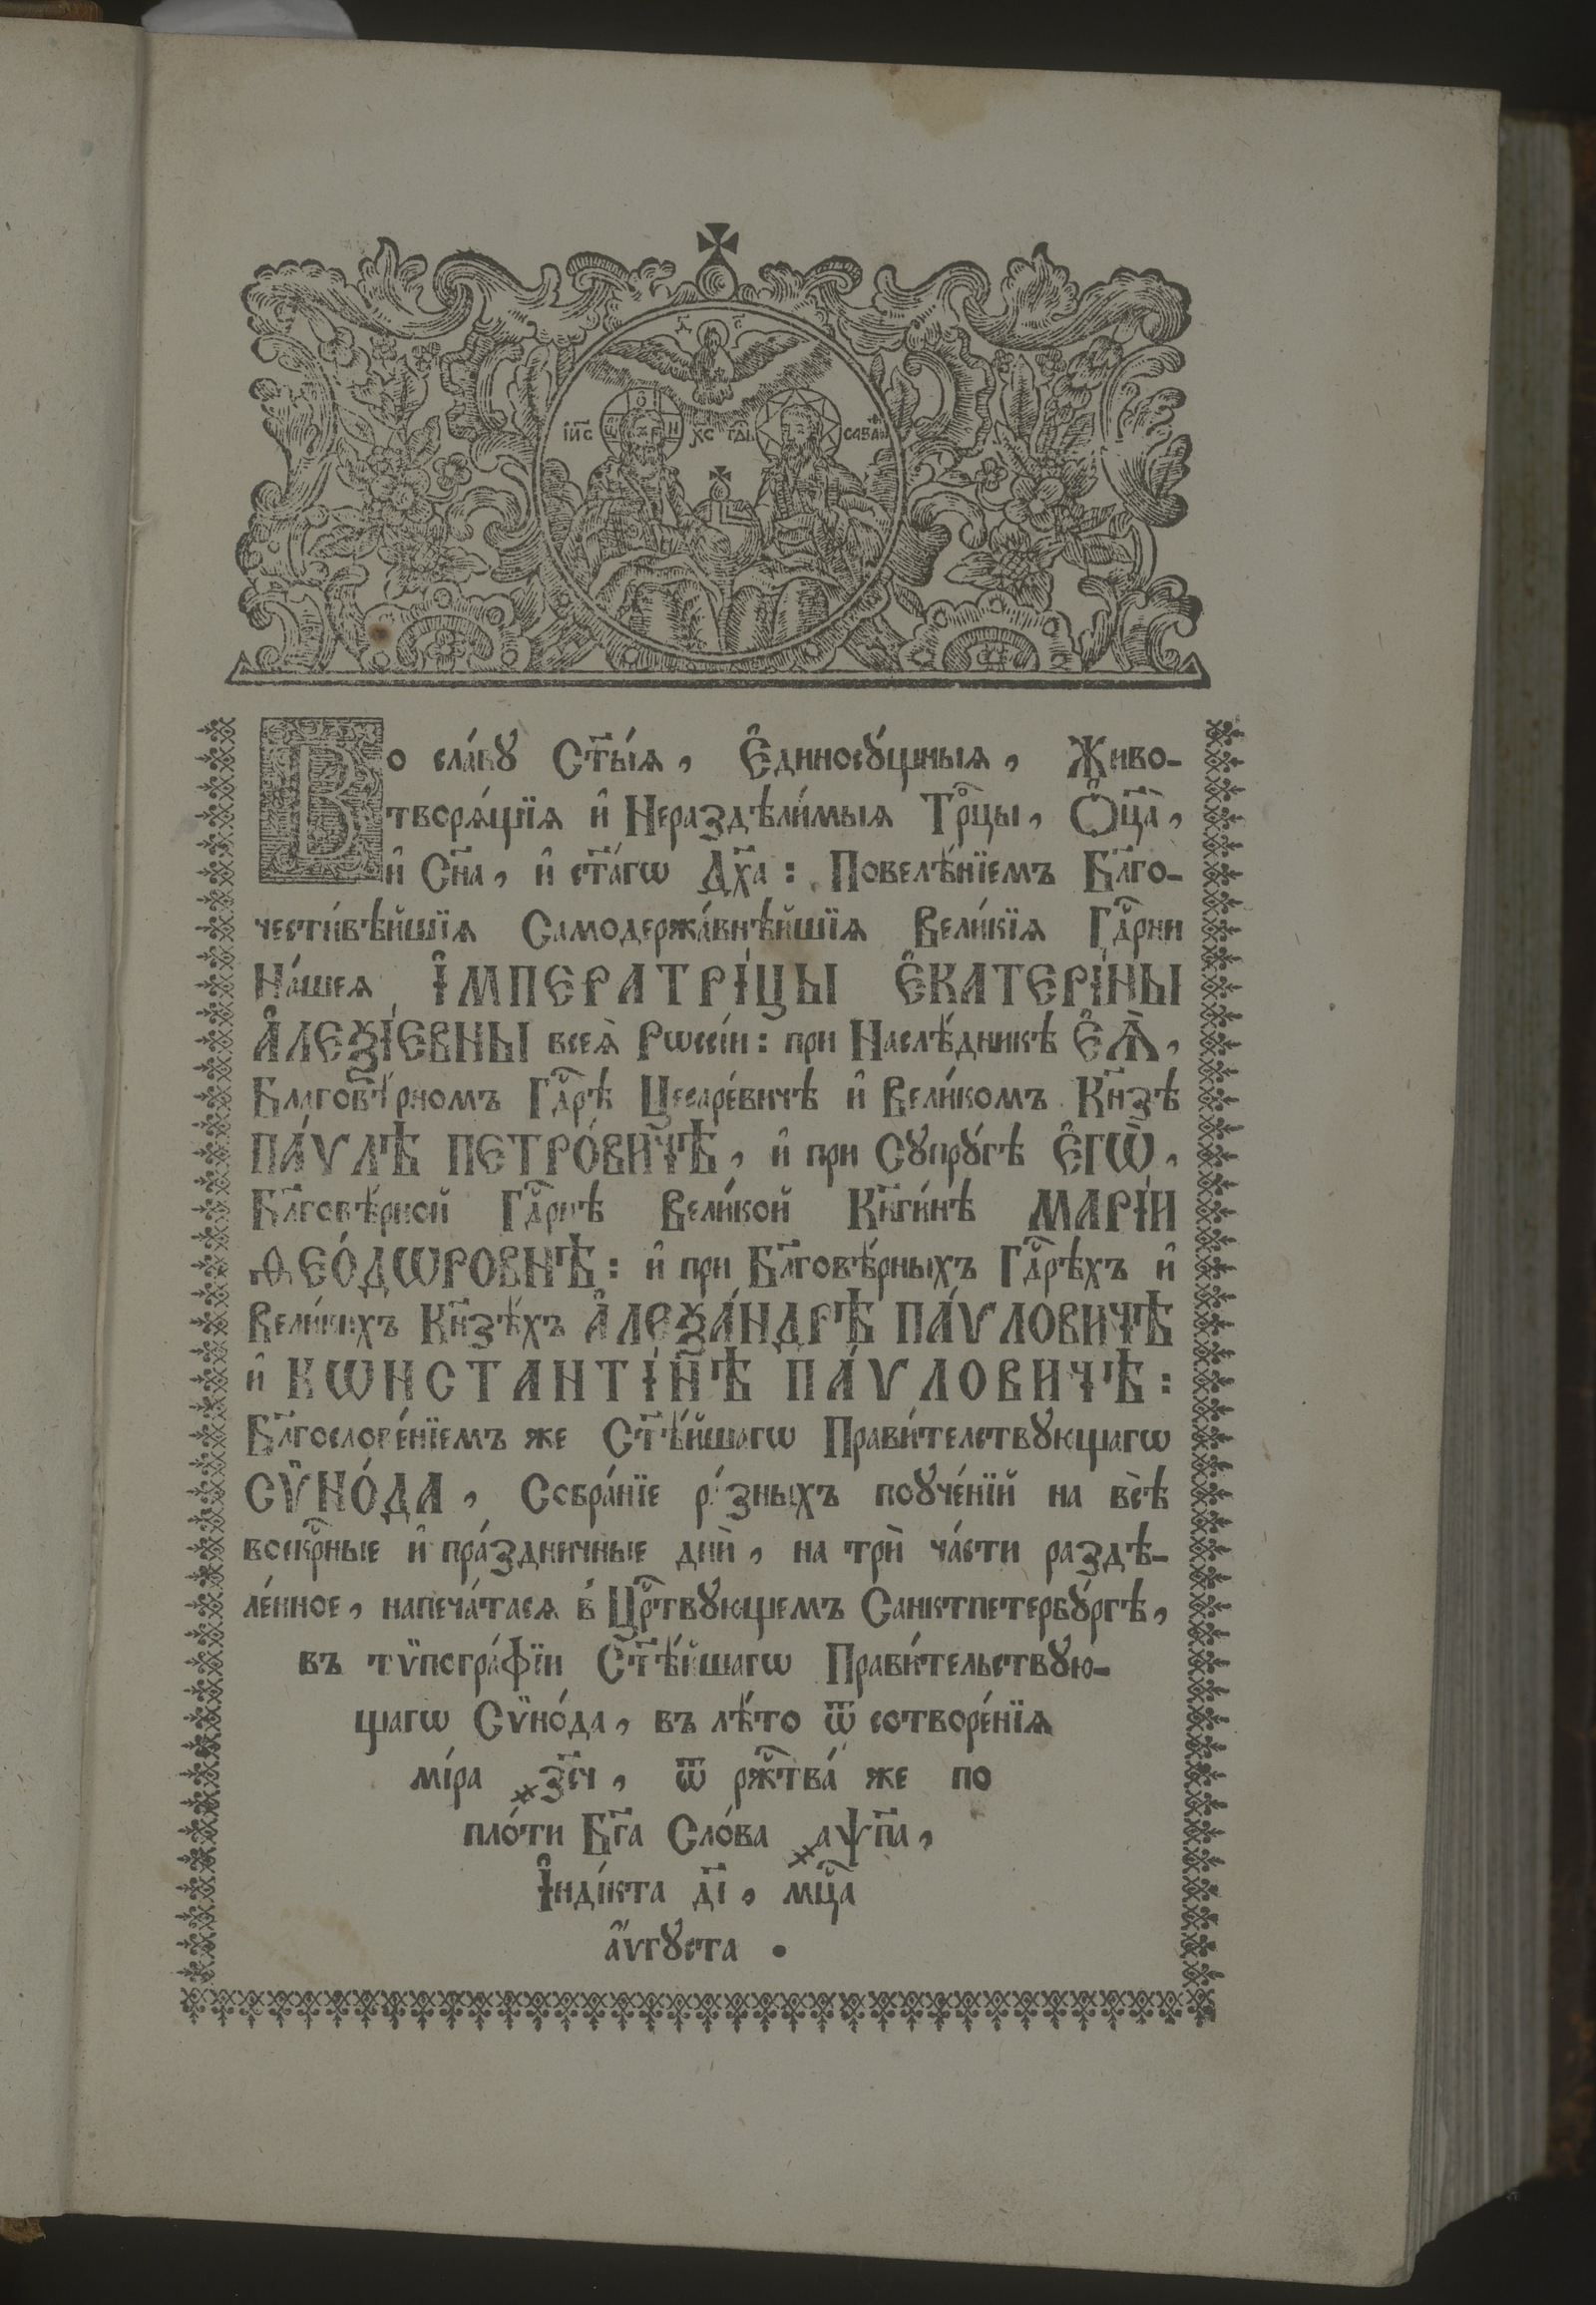 Д С
І҆И҃С ХС ГДЬ САВАѠ
Во сла́вꙋ Ст҃ы́ѧ, Є҆диносꙋ́щныѧ, Живо-
творѧ́щїѧ и҆ Нераздѣли́мыѧ Трⷪ҇цы, Ѻ҆ц҃а̀,
и҆ Сн҃а, и҆ ст҃а́гѡ Дх҃а: Повелѣ́нїемъ Бл҃го-
чести́вѣйшїѧ Самодержа́внѣйшїѧ Вели́кїѧ Гдⷭ҇рни
На́шеѧ І҆МПЕРАТРІ́ЦЫ Є҆КАТЕРІ́НЫ
А҆ЛЕѮІ́ЕВНЫ всеѧ̀ Рѡссі́и: при Наслѣ́дникѣ Є҆Ѧ̀,
Благовѣ́рномъ Гдⷭ҇рѣ Цесаре́вичѣ и҆ Вели́комъ Кн҃зѣ
ПА́ѴЛѢ ПЕТРО́ВИЧѢ, и҆ при Сꙋпрꙋ́гѣ Є҆ГѠ̀,
Бл҃говѣ́рной Гдⷭ҇рнѣ Вели́кой Кн҃ги́нѣ МАРІ́И
ѲЕО́ДѠРОВНѢ: и҆ при Бл҃говѣ́рныхъ Гдⷭ҇рѣхъ и҆
Вели́кихъ Кн҃зѣ́хъ А҆ЛЕѮА́НДРѢ ПА́ѴЛОВИЧѢ
и҆ КѠНСТАНТІ́НѢ ПА́ѴЛОВИЧѢ:
Бл҃гослове́нїемъ же Ст҃ѣ́йшагѡ Прави́телствꙋющагѡ
СѴ̈НО́ДА, Собра́нїе ра́зныхъ поꙋче́нїй на всѣ̀
воскрⷭ҇ные и҆ пра́здничные днѝ, на трѝ ча́сти раздѣ-
ле́нное, напеча́тасѧ в̾ Црⷭ҇твꙋющемъ Санктпетербꙋ́ргѣ,
въ тѷпогра́фїи Ст҃ѣ́йшагѡ Прави́тельствꙋю-
щагѡ Сѷно́да, въ лѣ́то ѿ сотворе́нїѧ
мі́ра ҂зс҃ч, ѿ рж҇тва́ же по
пло́ти Бг҃а Сло́ва ҂аѱп҃а,
І҆нді́кта д҃і, мцⷭ҇а
а҆́ѵгꙋста .